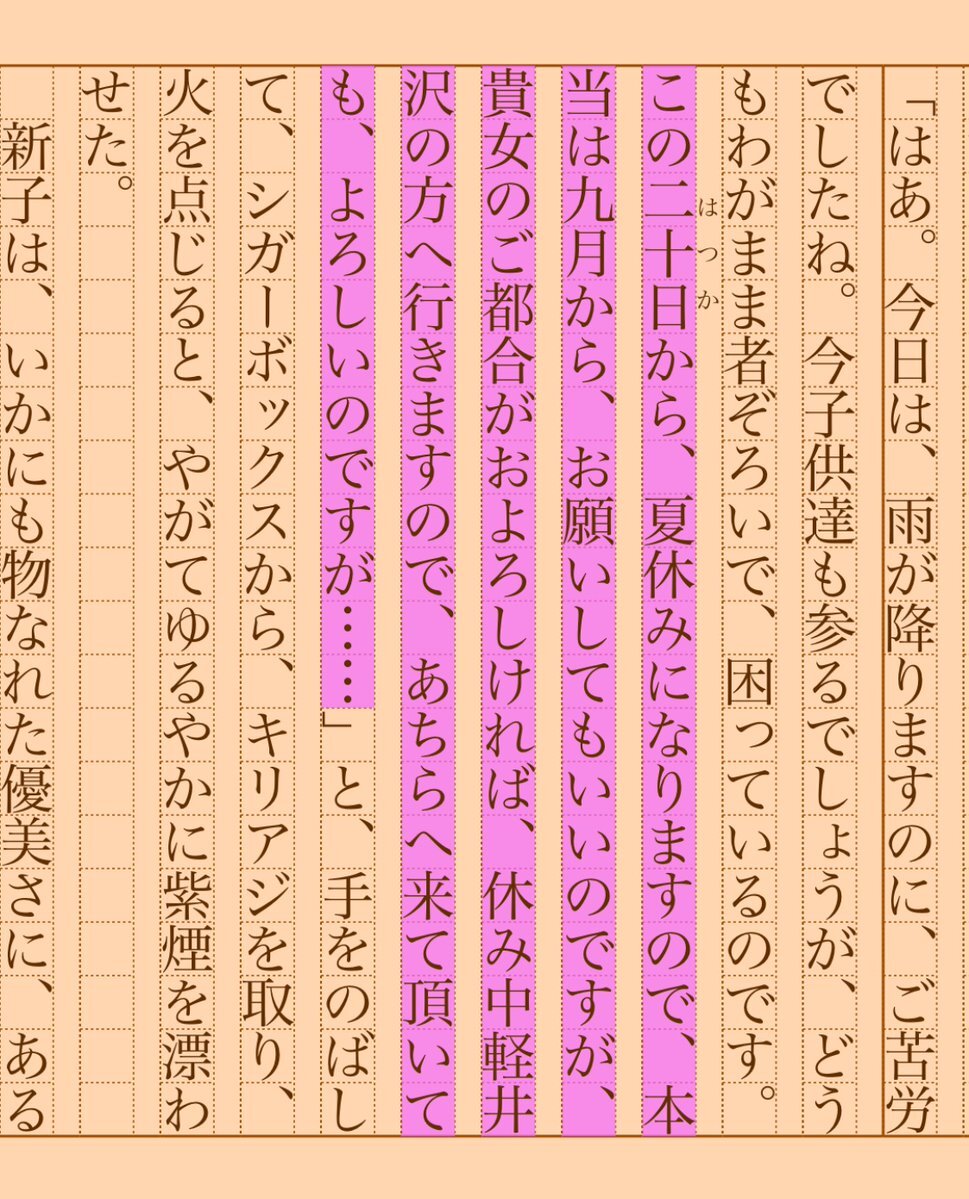 「はあ。今日は、雨が降りますのに、ご苦労
でしたね。今子供達も参るでしょうが、どう
もわがまま者ぞろいで、困っているのです。
はつか
この二十日から、夏休みになりますので、本
当は九月から、お願いしてもいいのですが、
貴女のご都合がおよろしければ、休み中軽井
沢の方へ行きますので、あちらへ来て頂いて
も、よろしいのですが……」と、手をのばし
て、シガーボックスから、キリアジを取り、
火を点じると、やがてゆるやかに紫煙を漂わ
せた。
新子は、いかにも物なれた優美さに、ある